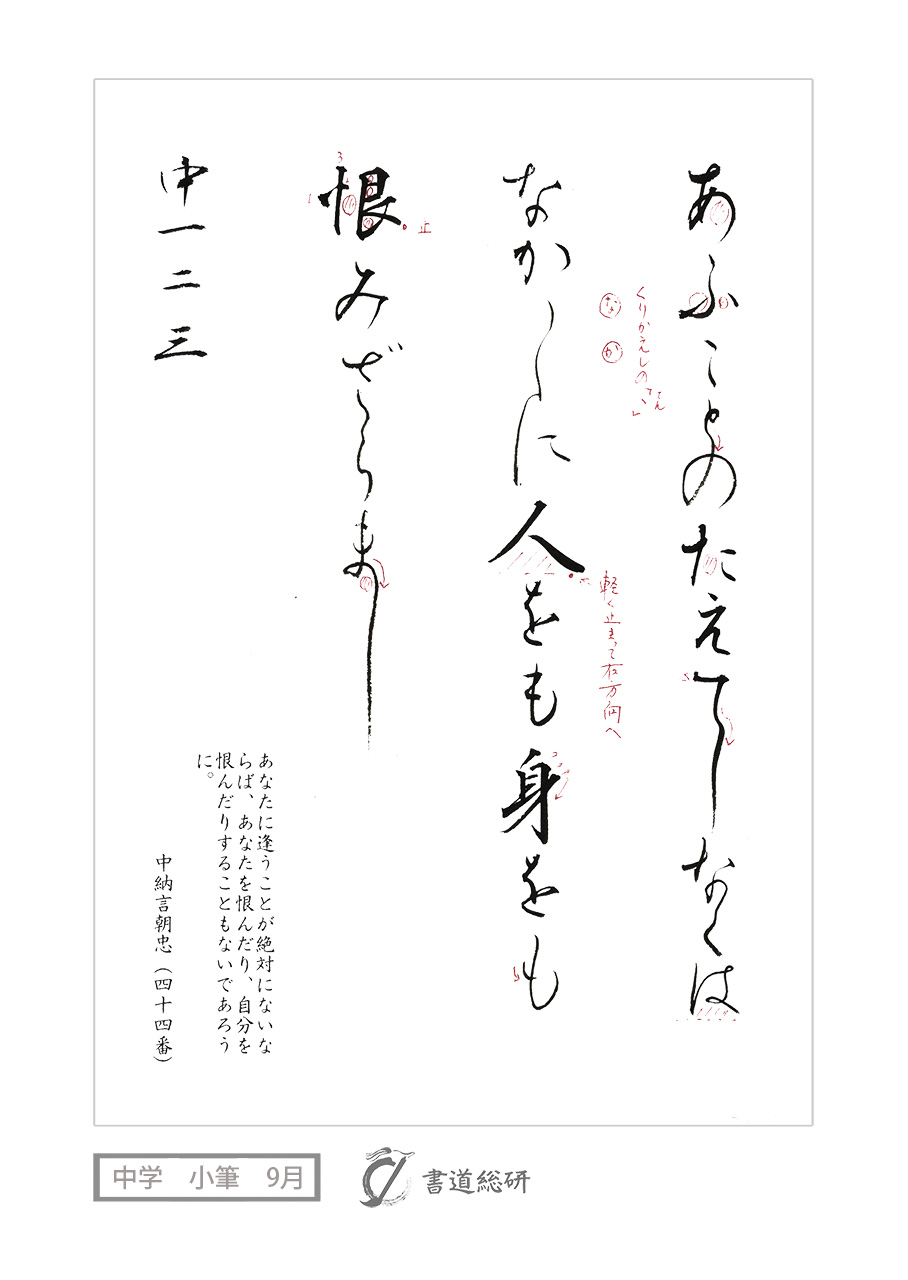 あふことのたえてしなくは
なか〱に人をも身をも
恨みざらまし
中一二三
くりかえしの「てん」
な
か
軽く止まって右方向へ
3
1
止
あなたに逢うことが絶対にないな
らば、あなたを恨んだり、自分を
恨んだりすることもないであろう
に。
中納言朝忠（四十四番）
中学 小筆 9月
書道総研